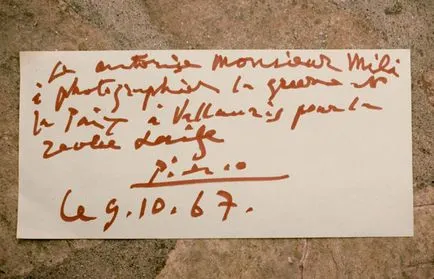 Je autorise Monsieur Mili
à photographier la guerre et
la Paix à Vallauris pour la
revue Life
Picasso
Le 9.10.67.